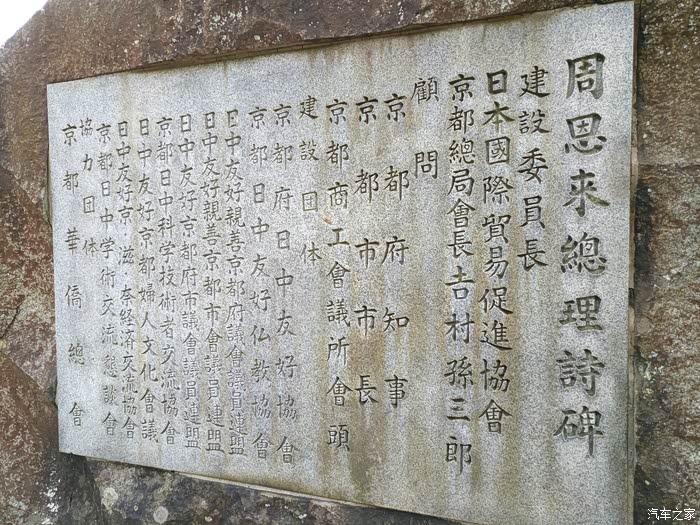 周恩来總理詩碑
建設委員長
日本國際貿易促進協會
京都總局會長吉村孫三郎
顧問
京都府知事
京都市市長
京都商工會議所會頭
建設団体
京都府日中友好協會
京都日中友好仏教協會
日中友好親善京都府議會議員連盟
日中友好親善京都市會議員連盟
日中友好京都府市議會議員連盟
京都日中科学技術者交流協會
日中友好京都婦人文化會議
日中友好京滋奈経済交流協會
京都日中学術交流懇談會
協力団体
京都華僑總會
汽车之家